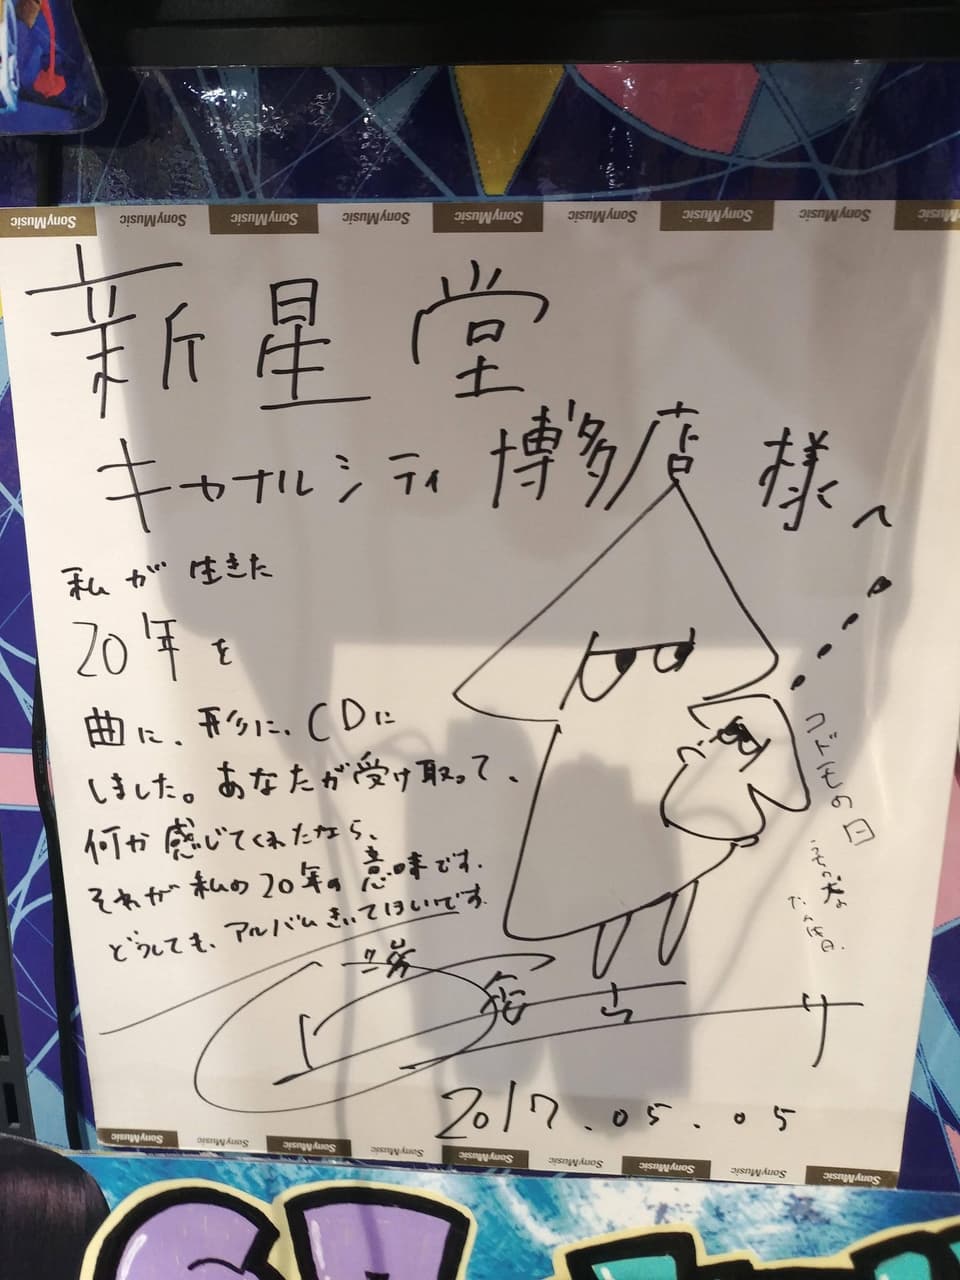 SonyMusic SonyMusic SonyMusic SonyMusic SonyMusic SonyMusic SonyMusic SonyMusic SonyMusic
新星堂
キャナルシティ博多店 様へ
私が生きた
20年を
曲に、形に、CDに
しました。あなたが受け取って、
何か感じてくれたなら、
それが私の20年の意味です。
どうしても、アルバムきいてほしいです。
コドモの日
2017.05.05
SonyMusic SonyMusic SonyMusic SonyMusic SonyMusic SonyMusic SonyMusic SonyMusic